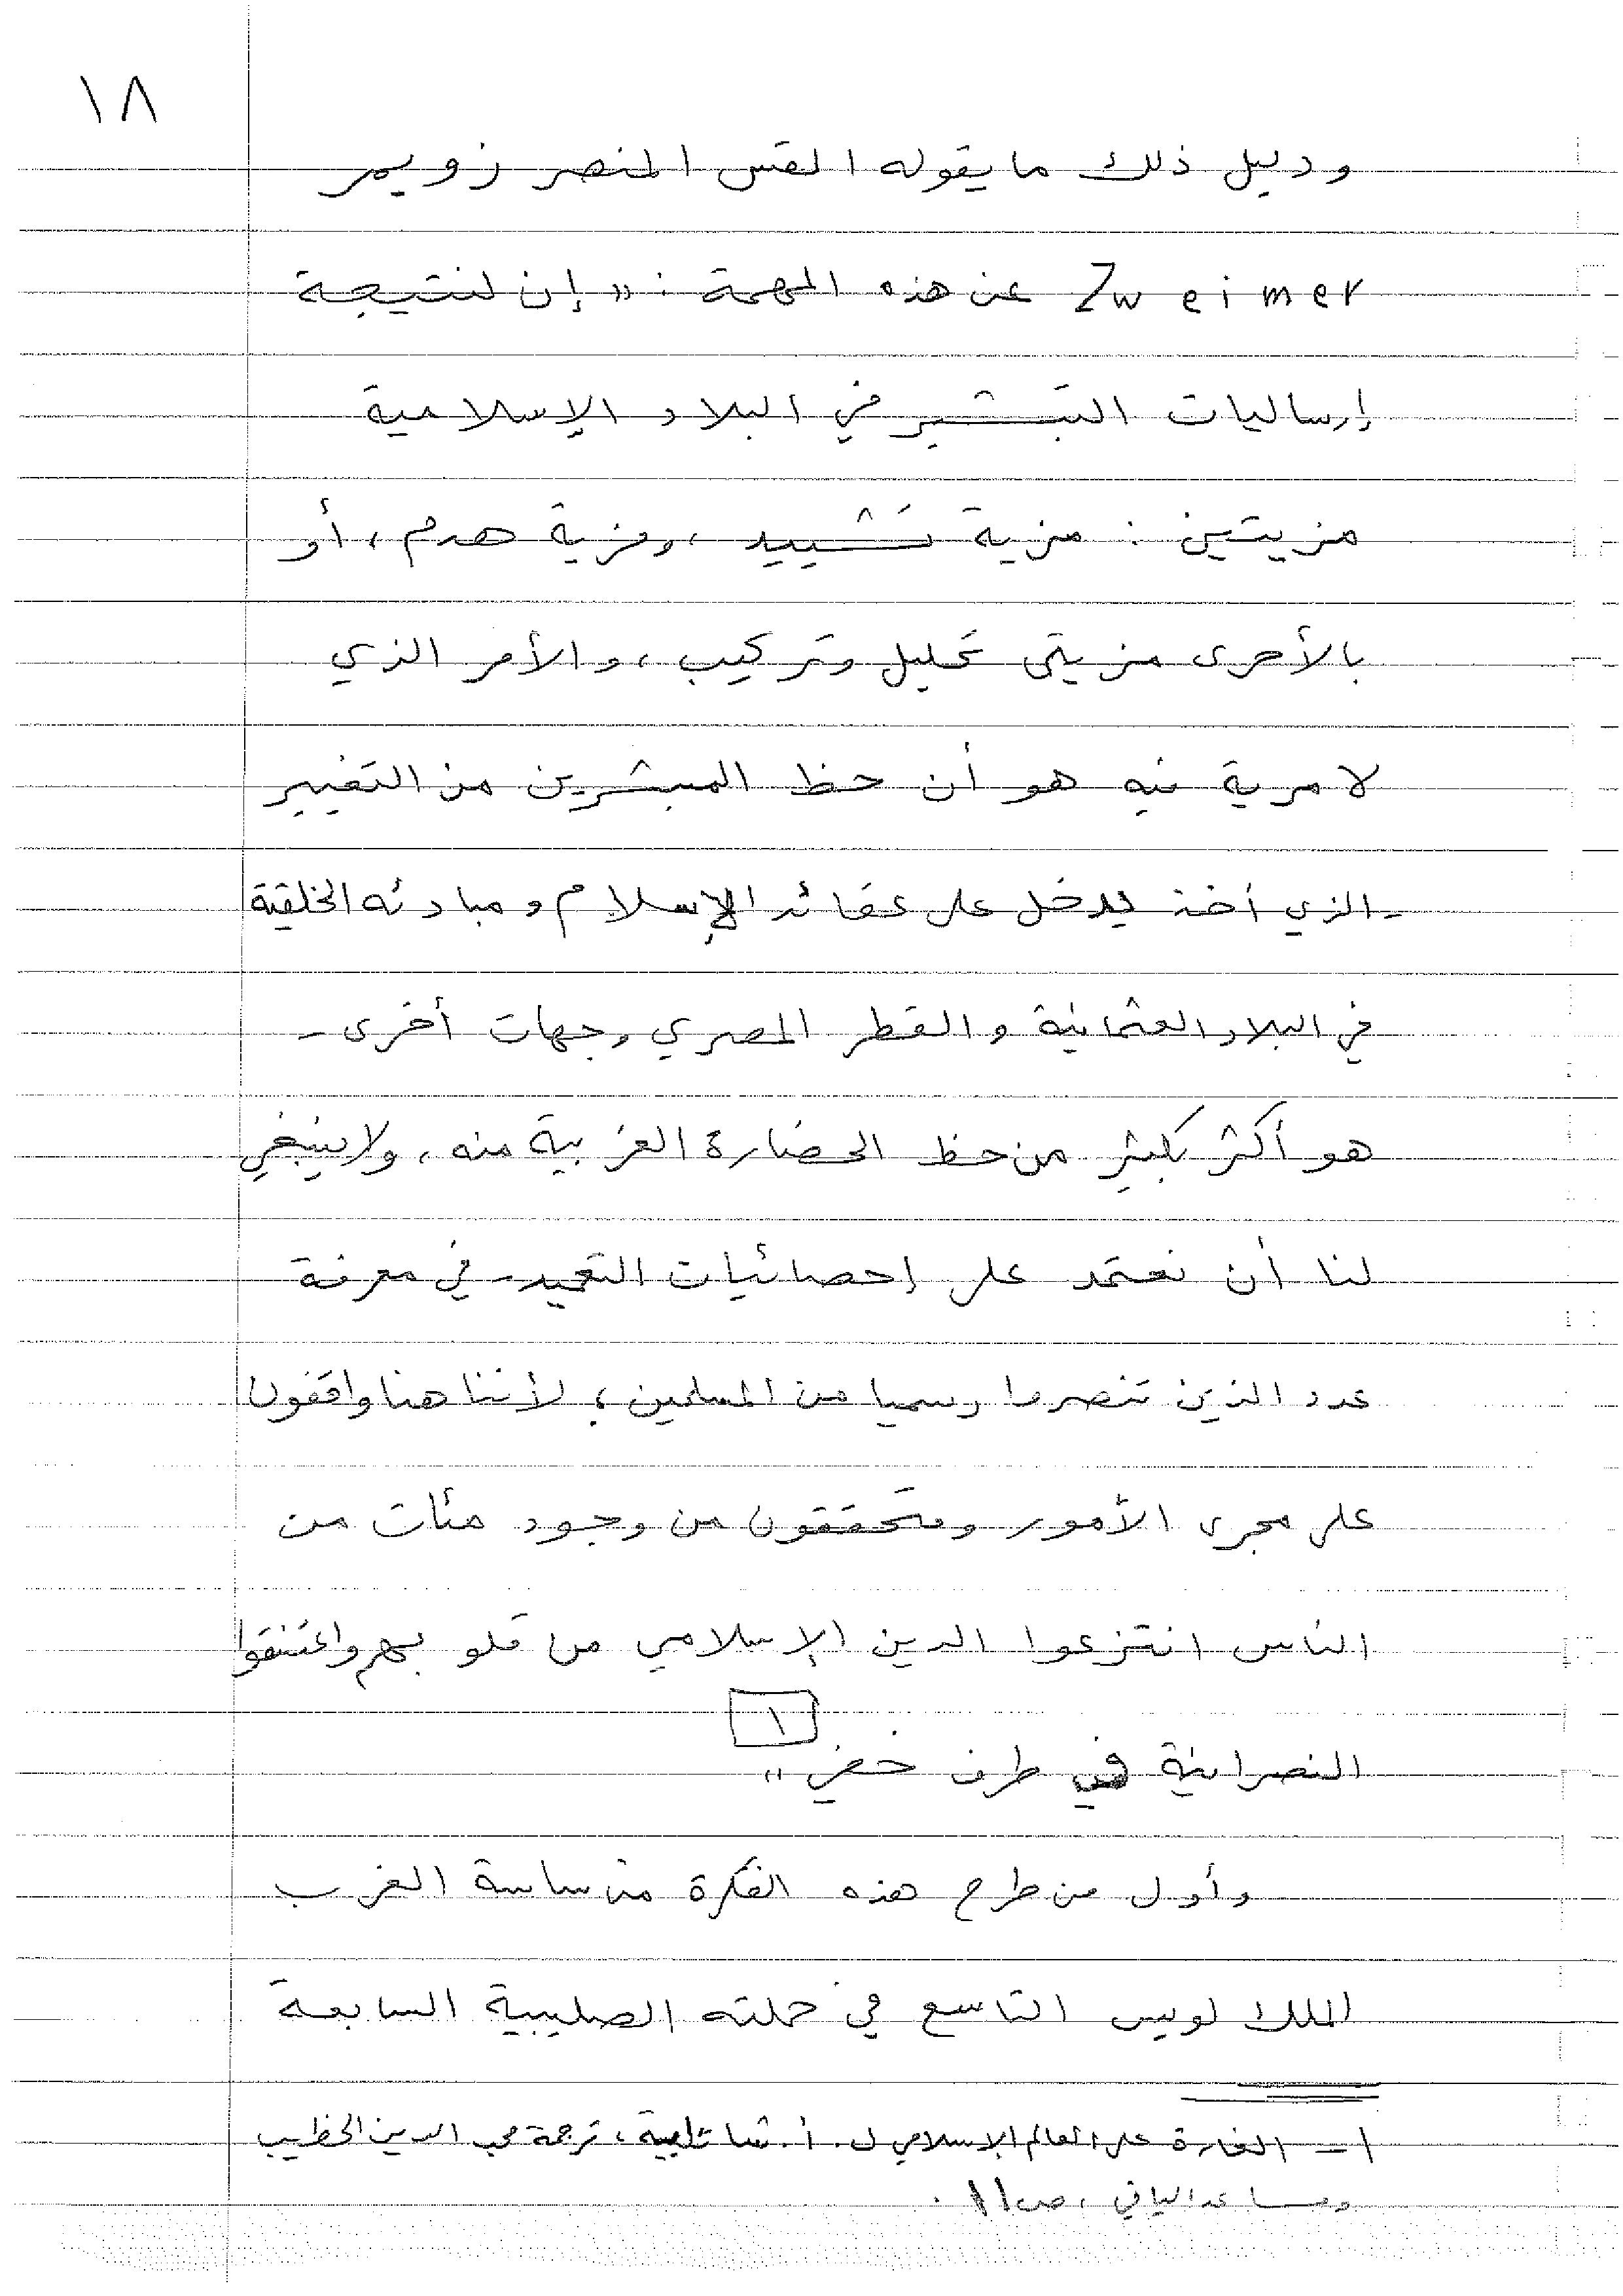 ١٨
ودليل ذلك ما يقوله القس المنصر زويمر
Zweimer عن هذه المهمة : «إن لنتيجة
إرساليات التبشير في البلاد الإسلامية
مزيتين : مزية تشييد ، ومزية هدم ، أو
بالأحرى مزيتي تحليل وتركيب ، والأمر الذي
لا مرية فيه هو أن حظ المبشرين من التغيير
- الذي أخذ يدخل على عقائد الإسلام ومبادئه الخلقية
في البلاد العثمانية والقطر المصري وجهات أخرى -
هو أكثر بكثير من حظ الحضارة الغربية منه ، ولا ينبغي
لنا أن نعتمد على إحصائيات التعميد في معرفة
عدد الذين تنصروا رسميا من المسلمين ؛ لأننا هنا واقفون
على مجرى الأمور ومتحققون من وجود مئات من
الناس انتزعوا الدين الإسلامي من قلوبهم واعتنقوا
النصرانية في طرف خفي» [١]
وأول من طرح هذه الفكرة من ساسة الغرب
الملك لويس التاسع في حملته الصليبية السابعة
١ - الغارة على العالم الإسلامي ل. أ. شاتلييه ، ترجمة محب الدين الخطيب
ومساعد اليافي ، ص١١ .